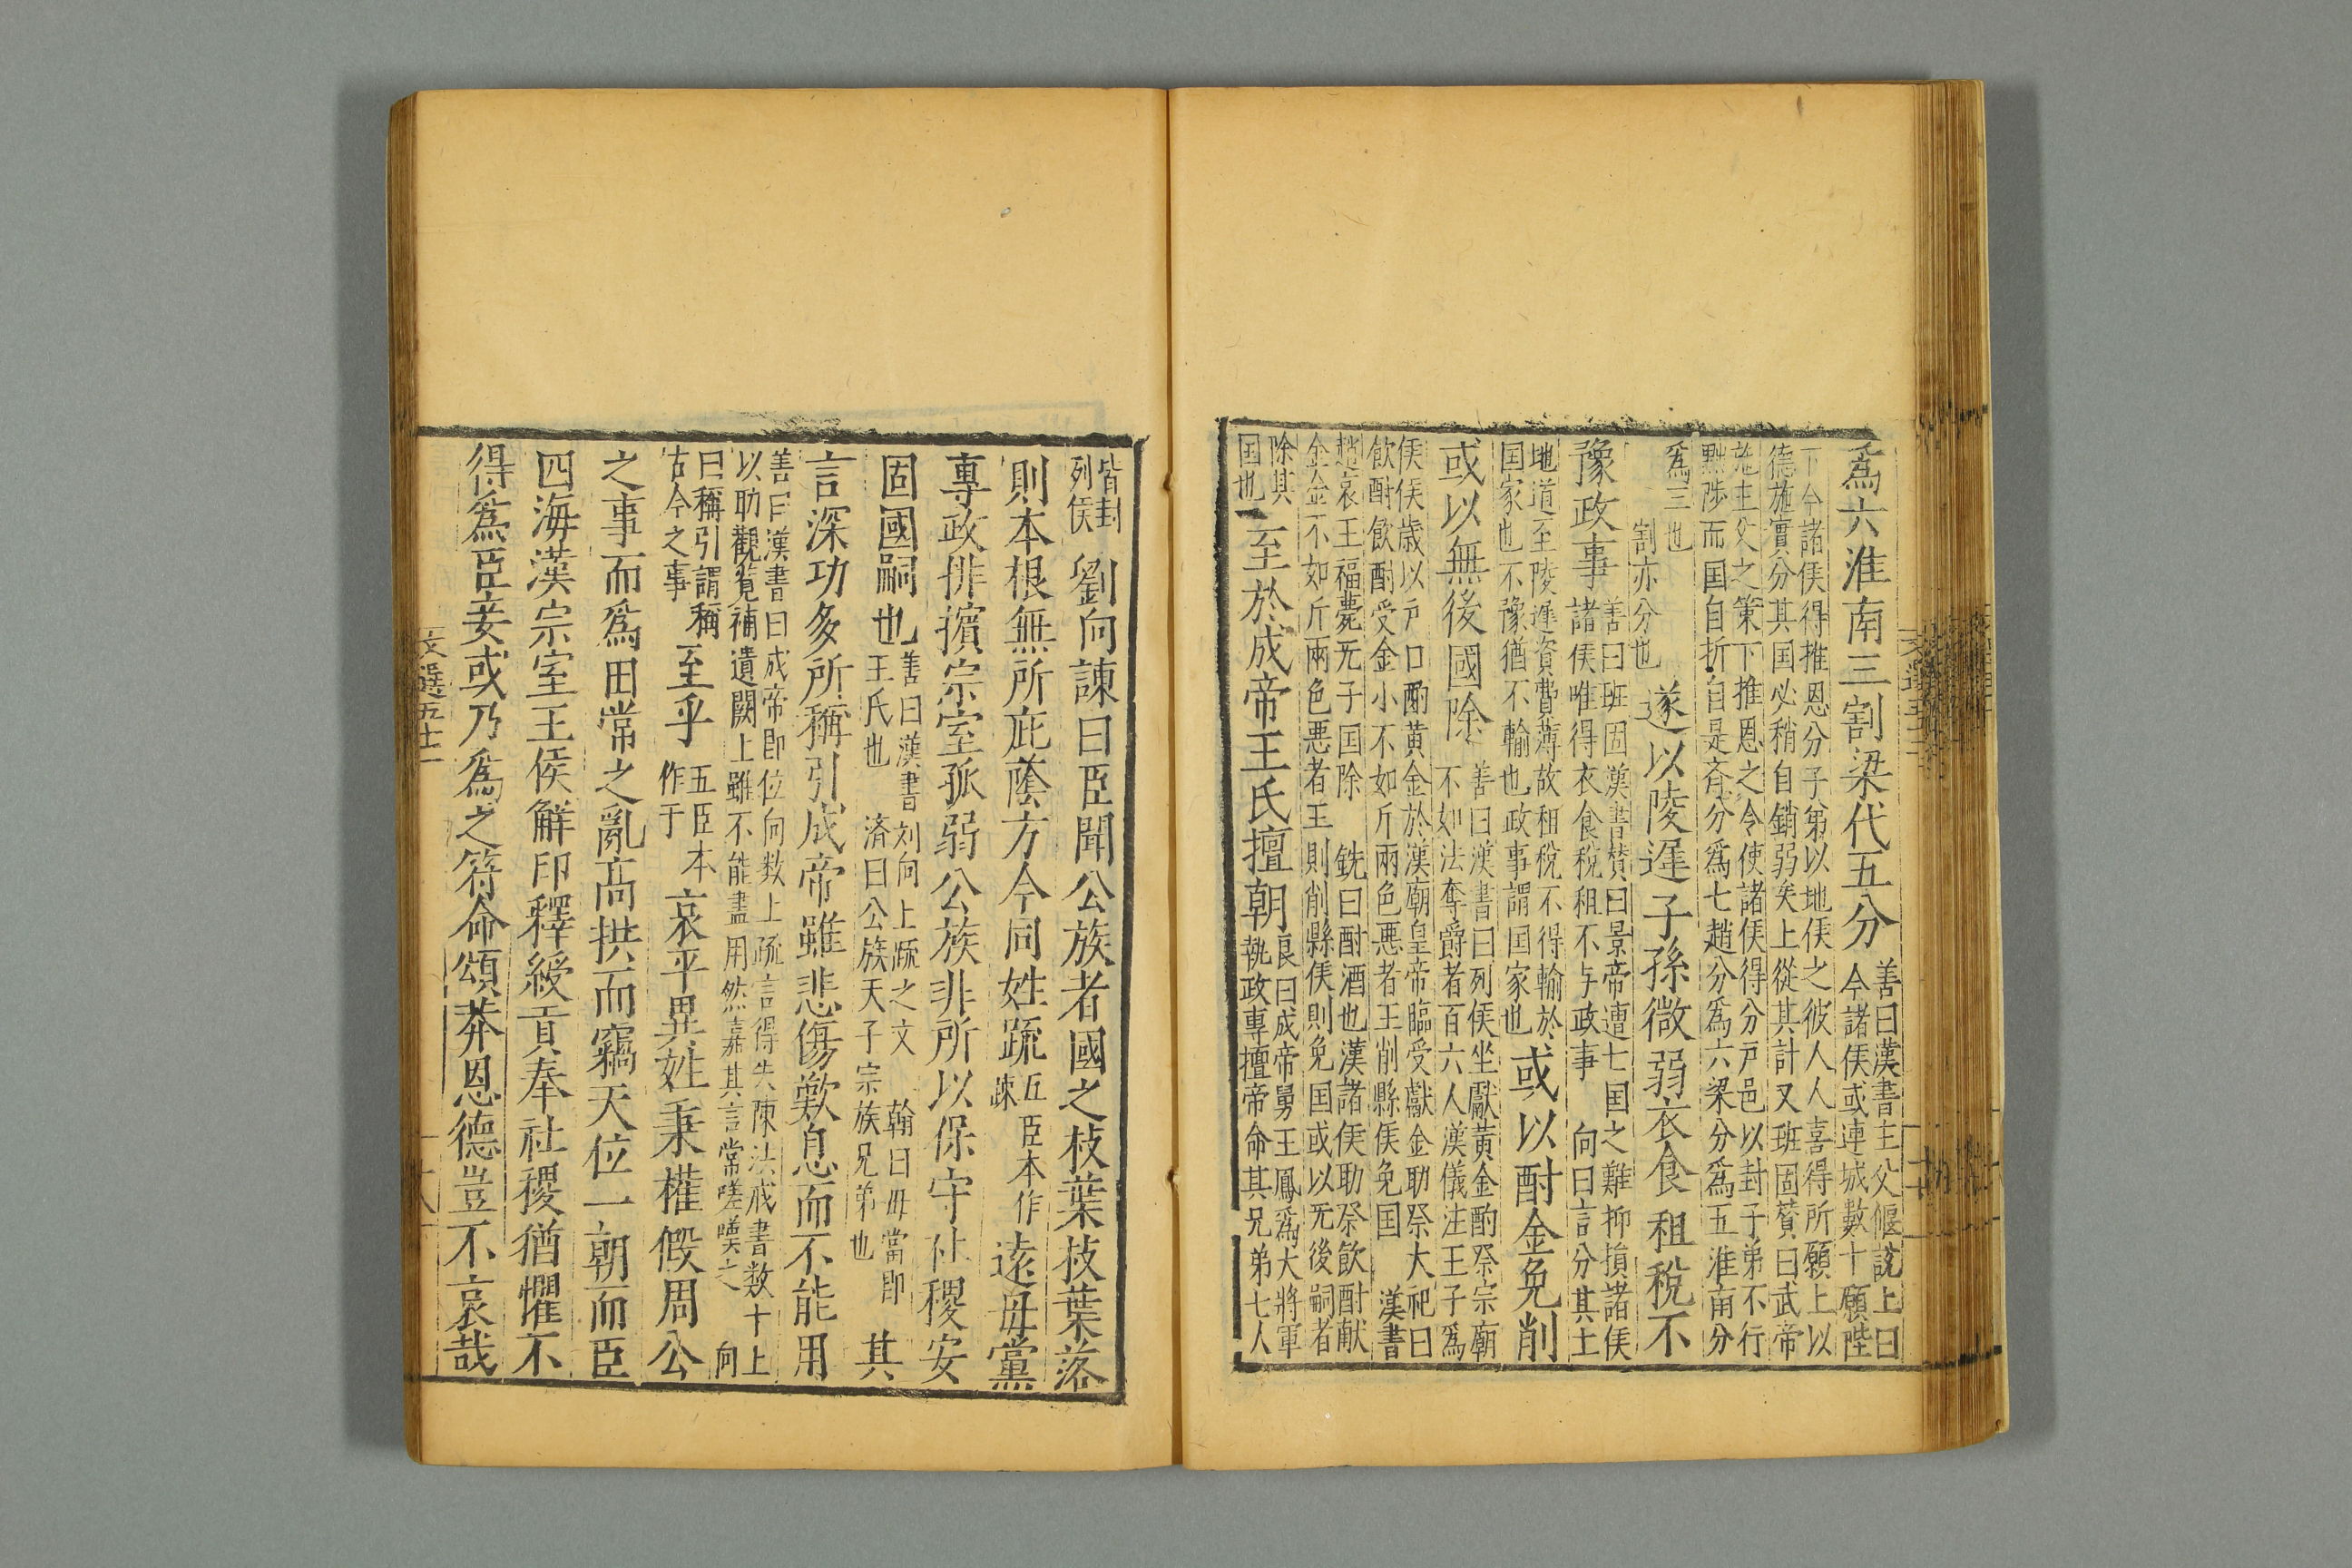 爲六淮南三割梁代五分善曰漢書主父偃說上曰今諸侯或連城數十願陛
下令諸侯得推恩分子弟以地侯之彼人人喜得所願上以德施實分其国必稍自銷弱矣上從其計又班固賛曰武帝
施主父之策下推恩之令使諸侯得分戸邑以封子弟不行黜陟而国自折自是斉分爲七趙分爲六梁分爲五淮南分
爲三也割亦分也遂以陵遅子孫微弱衣食租稅不
豫政事善曰班固漢書賛曰景帝遭七国之難抑損諸侯諸侯唯得衣食稅租不与政事向曰言分其土
地道至陵遅資費薄故租稅不得輸於国家也不豫猶不輸也政事謂国家也或以酎金免削
或以無後國除善曰漢書曰列侯坐獻黃金酎祭宗廟不如法奪爵者百六人漢儀注王子爲
侯侯歳以戸口酎黄金於漢廟皇帝臨受獻金助祭大祀曰飲酎飲酎受金小不如斤兩色悪者王削縣侯免国漢書
趙哀王福薨无子国除銑曰酎酒也漢諸侯助祭飲酎献金金不如斤兩色悪者王則削縣侯則免国或以无後嗣者
除其国也至於成帝王氏擅朝良曰成帝舅王鳳爲大將軍執政專擅帝命其兄弟七人
皆封列侯劉向諫曰臣聞公族者國之枝葉枝葉落
則本根無所庇蔭方今同姓疏五臣本作踈遠毋黨
專政排擯宗室孤弱公族非所以保守社稷安
固國嗣也善曰漢書刘向上疏之文翰曰毋當即王氏也済曰公族天子宗族兄弟也其
言深功多所稱引成帝雖悲傷歎息而不能用
善曰漢書曰成帝即位向数上疏言得失陳法戒書数十上以助觀覧補遺闕上雖不能盡用然嘉其言常嗟嘆之向
曰稱引謂稱古今之事至乎五臣本作于哀平異姓秉權假周公
之事而爲田常之亂高拱而竊天位一朝而臣
四海漢宗室王侯解印釋綬貢奉社稷猶懼不
得爲臣妾或乃爲之符命頌莽恩德豈不哀哉
文選五十二
十八